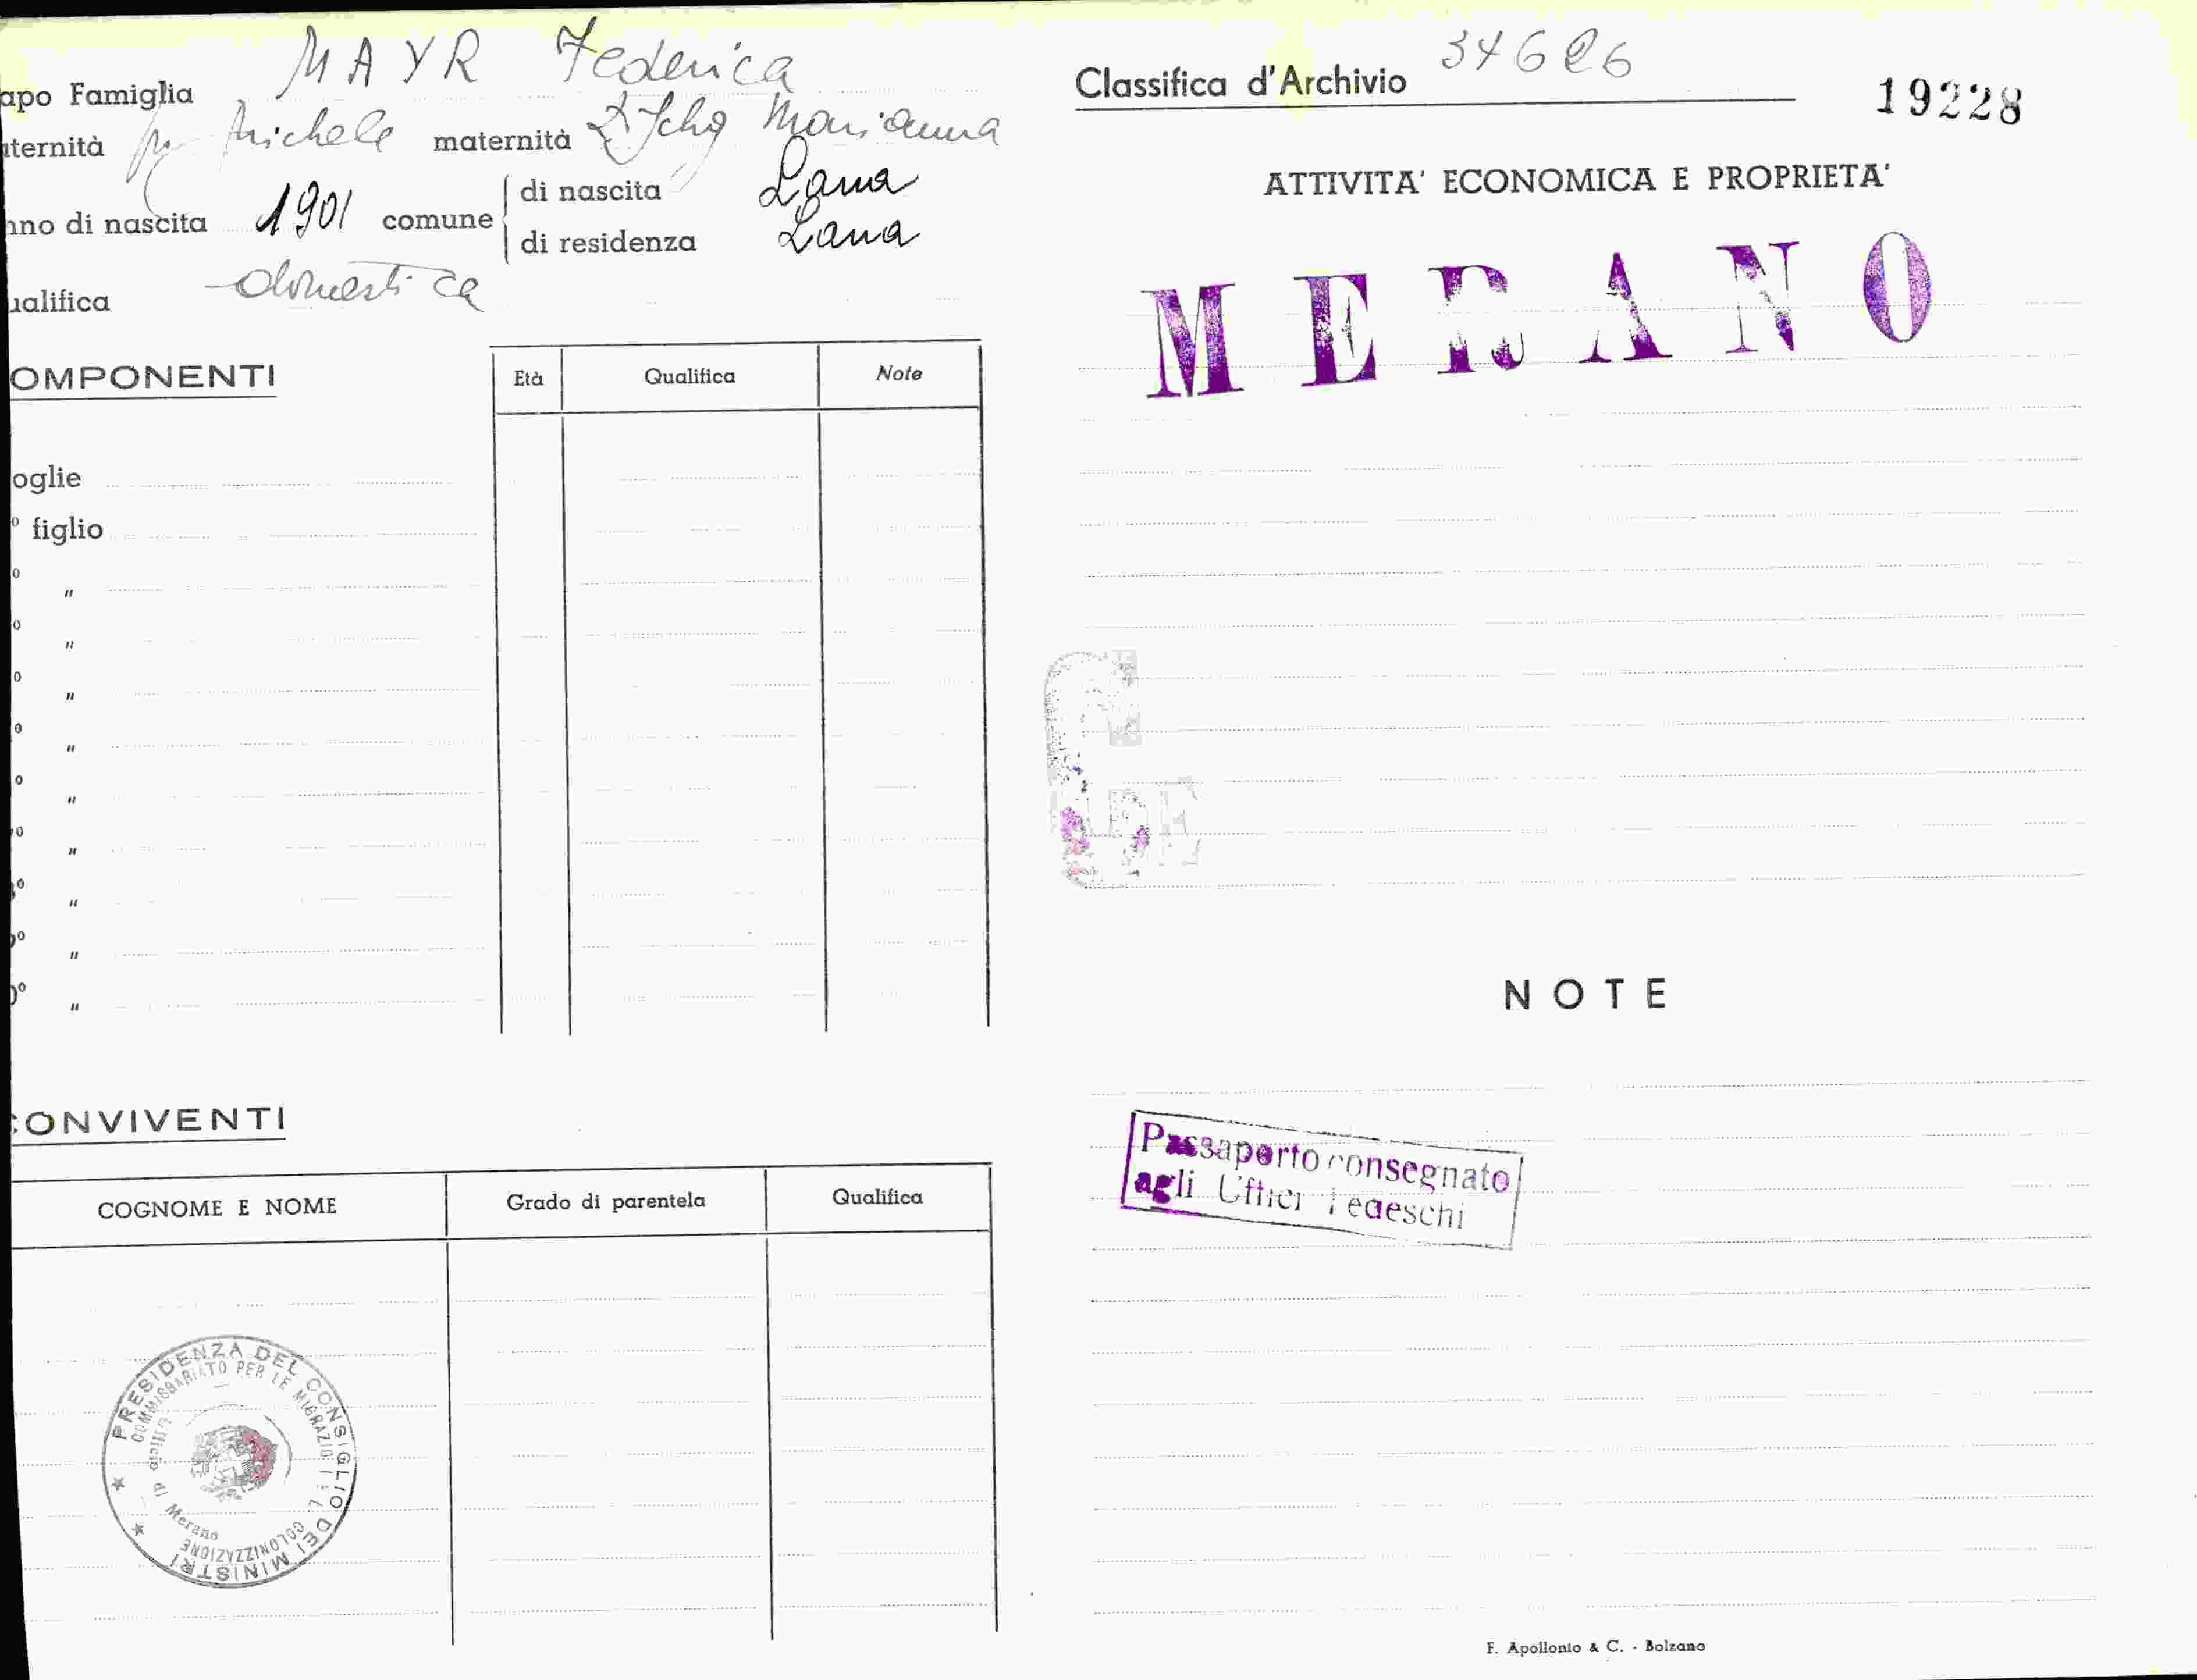 apo Famiglia MAYR Federica
ternità fu Michele maternità Marianna
nno di nascita 1901 comune
di nascita Lana
di residenza Lana
ualifica domestica
OMPONENTI
Età Qualifica Note
oglie
º figlio
º "
º "
º "
º "
º "
º "
º "
º "
0º "
CONVIVENTI
COGNOME E NOME Grado di parentela Qualifica
PRESIDENZA DEL CONSIGLIO DEI MINISTRI
COMMISSARIATO PER LE MIGRAZIONI E LA COLONIZZAZIONE
Ufficio di Merano
Classifica d'Archivio 34626
19228
ATTIVITA' ECONOMICA E PROPRIETA'
MERANO
NOTE
Passaporto consegnato
agli Uffici Tedeschi
F. Apollonio & C. - Bolzano